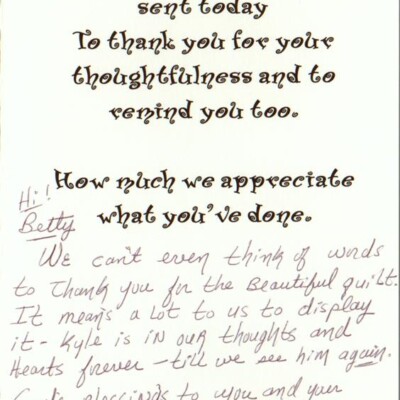 sent today
To thank you for your
thoughtfulness and to
remind you too.
How much we appreciate
what you've done.
Hi!
Betty
We can't even think of words
to Thank you for the Beautiful quilt.
It means a lot to us to display
it - Kyle is in our thoughts and
Hearts forever - till we see him again.
God's blessings to you and your